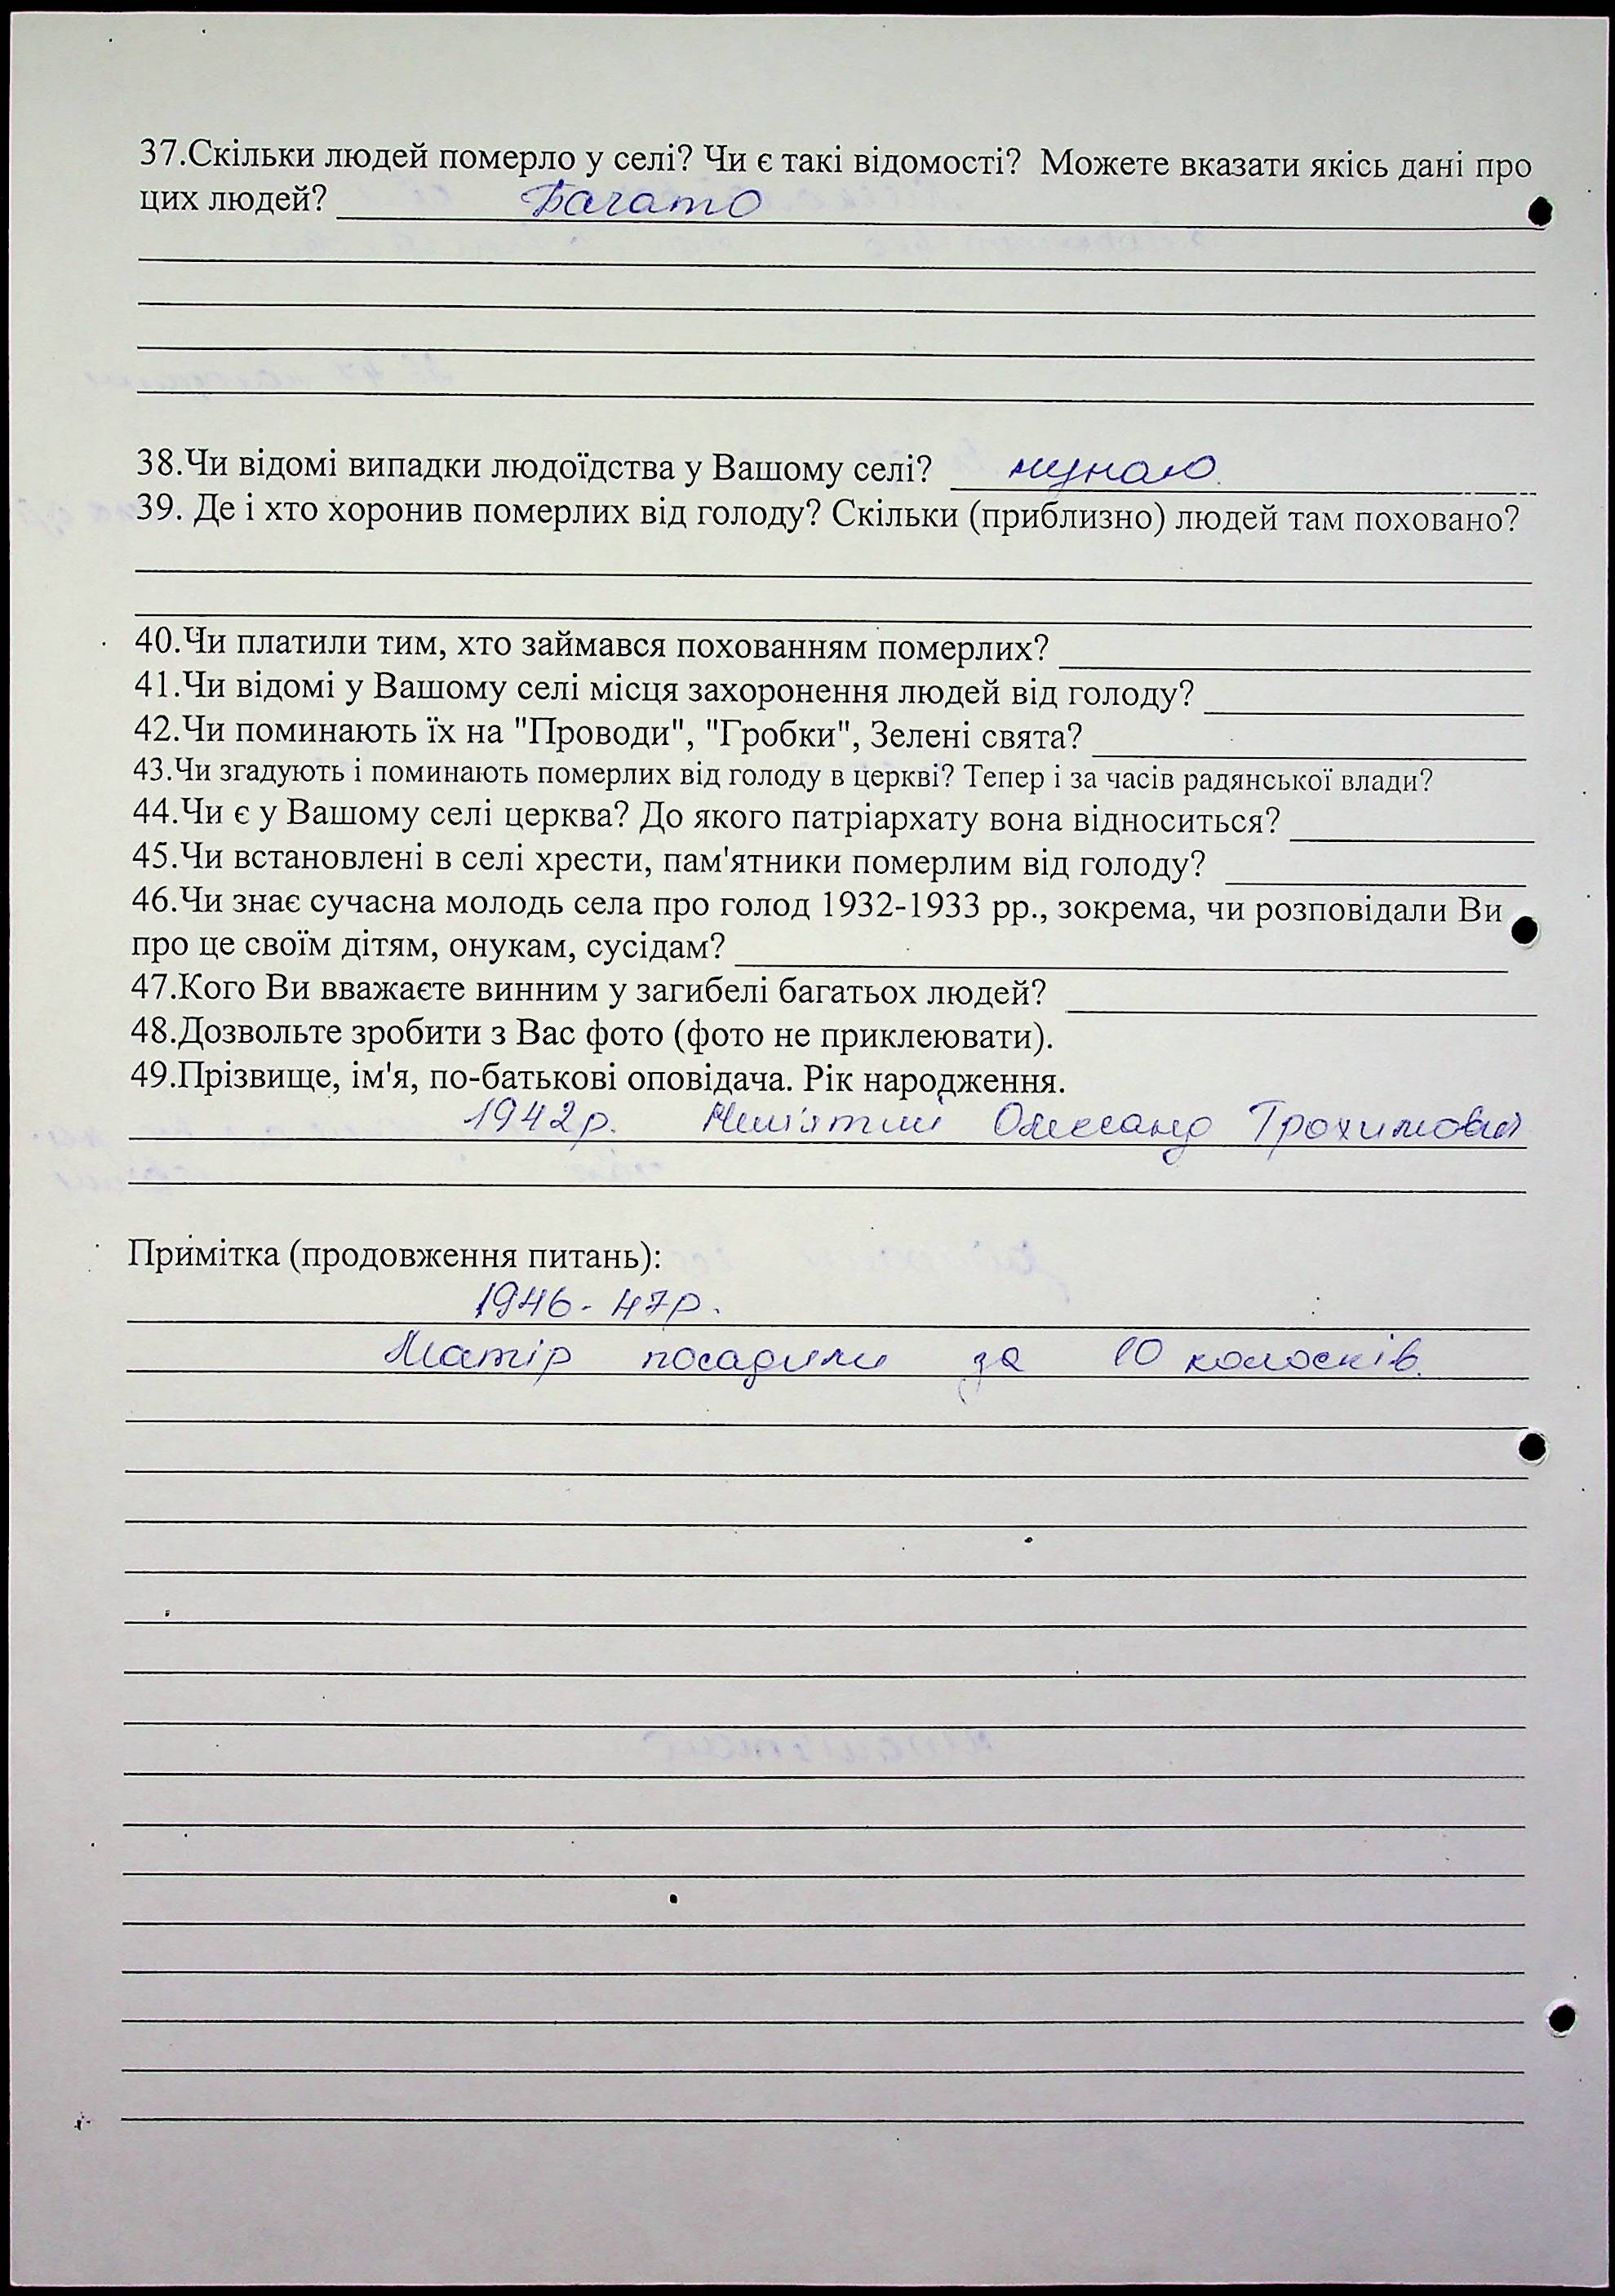 37.Скільки людей померло у селі? Чи є такі відомості? Можете вказати якісь дані про
цих людей? Багато
38.Чи відомі випадки людоїдства у Вашому селі?
39. Де і хто хоронив померлих від голоду? Скільки (приблизно) людей там поховано?
40.Чи платили тим, хто займався похованням померлих?
41.Чи відомі у Вашому селі місця захоронення людей від голоду?
42.Чи поминають їх на "Проводи", "Гробки", Зелені свята?
43.Чи згадують і поминають померлих від голоду в церкві? Тепер і за часів радянської влади?
44.Чи є у Вашому селі церква? До якого патріархату вона відноситься?
45.Чи встановлені в селі хрести, пам'ятники померлим від голоду?
46.Чи знає сучасна молодь села про голод 1932-1933 рр., зокрема, чи розповідали Ви
про це своїм дітям, онукам, сусідам?
47.Кого Ви вважаєте винним у загибелі багатьох людей?
48.Дозвольте зробити з Вас фото (фото не приклеювати).
49.Прізвище, ім'я, по-батькові оповідача. Рік народження.
1942р. Олександ Трохимович
Примітка (продовження питань):
1946-47р.
Матір посадили за 10 колосків.